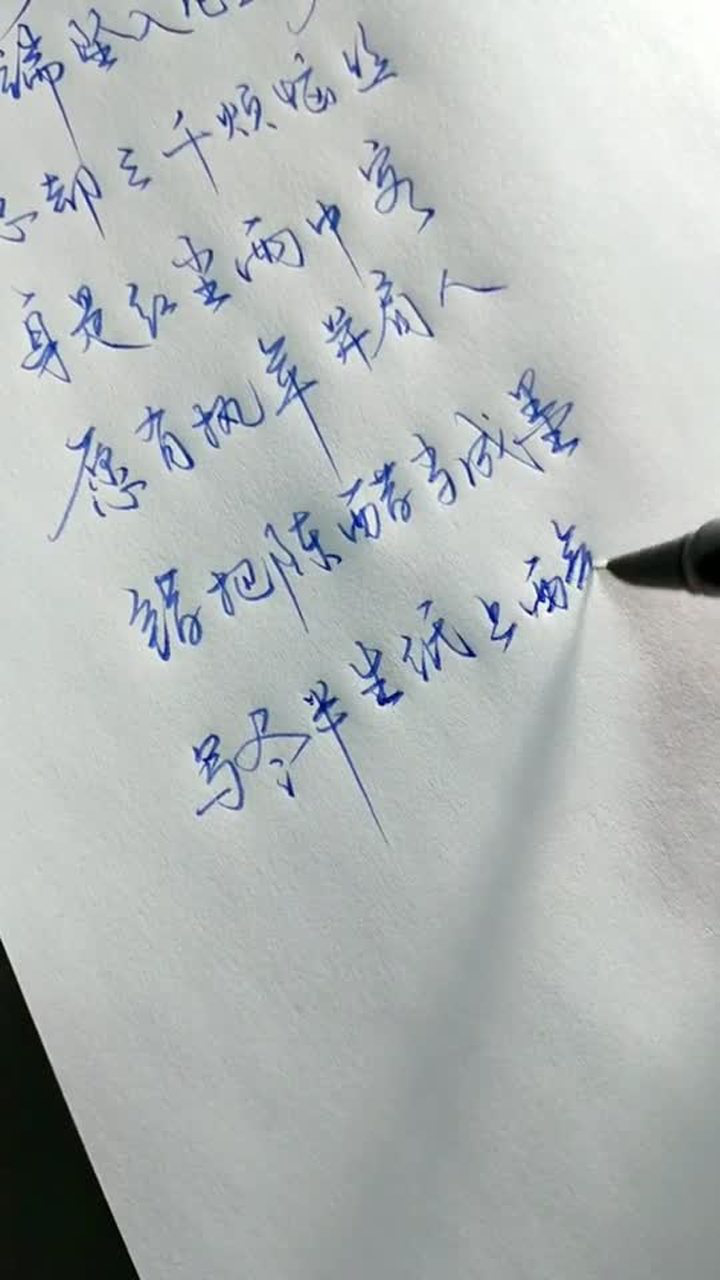 端坠入
却三千烦恼丝
身是红尘雨中客
愿有执革并肩人
错把陈醋当成墨
写尽半生纸上酸